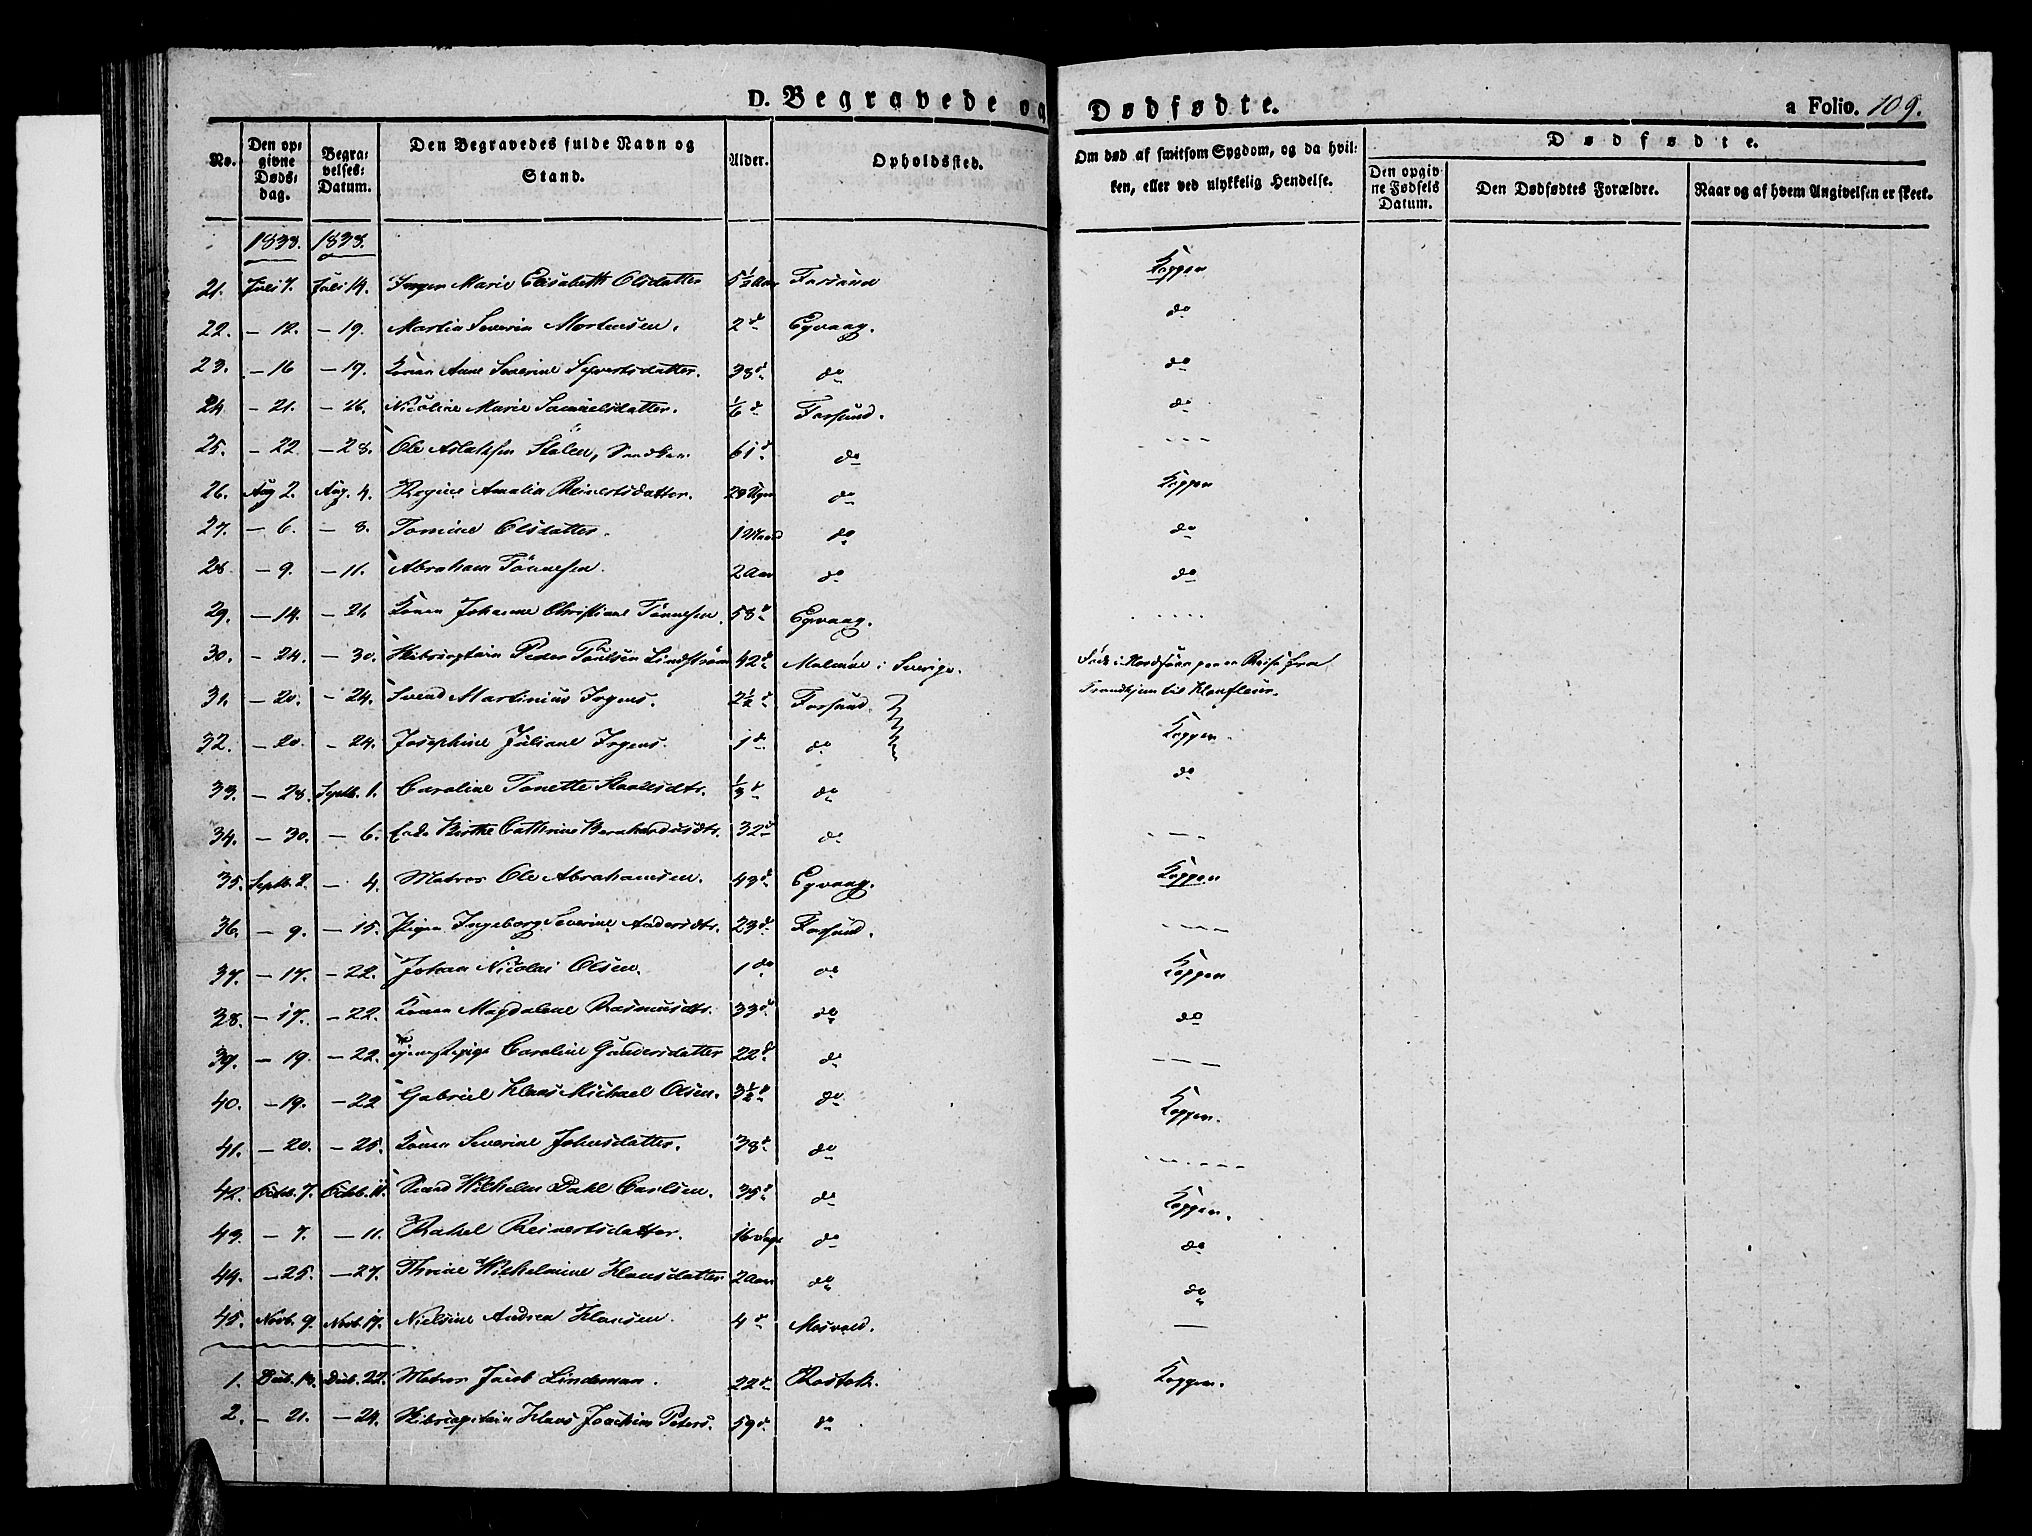 D. Begravede og Dødfødte. a Folio. 109.
No. Den opgivne Dødsdag. Begravelses-Datum. Den Begravedes fulde Navn og Stand. Alder. Opholdssted. Om død af smitsom Sygdom, og da hvilken, eller ved ulykkelig Hendelse. Dødfødte. Den opgivne Fødsels Datum. Den Dødfødtes Forældre. Naar og af hvem Angivelsen er skeet.
1838. 1838.
21. Juli 7. Juli 14. Marie Elisabeth Olsdatter 5½ Aar Farsund Kopper
22. — 12. — 19. Martin Severin Mortensen. 2 do Eqvaag. do
23. — 16 — 19. Konen Anne Severine Syvertsdatter. 38 do do do
24. — 21. — 26. Nicoline Marie Samuelsdatter. 1/6 do Farsund. do
25. — 22. — 28. Ole Aslaksen 61 do do - - - -
26. Aug 2. Aug. 4. Regine Amalia Reinertsdatter. do Kopper
27. — 6. — 8. Tomine Olsdatter. 1 Maaned do do
28. — 9. — 11. Abraham Tønnesen. 2 Aar do do
29. — 14. — 21. Konen Johanne Christiane Tønnesen. 58 do Eqvaag. - - - -
30. — 24. — 30. Skibscaptain Peder Paulsen Lindstrøm 42 do Malmøe i Sverige. Døde i Nordsøen paa en Reise fra
Trondhjem til
31. — 20. — 24. Svend Martinius Jrgens. 2½ do Farsund. Kopper.
32. — 20. — 24. Josephine Juliane Jrgens. 1 do do do
33. — 28. Septb. 1. Caroline Tonette 1/3 do do
34. — 30. — 6. Enke Birthe Cathrine Bernhardusdtr. 32 do do - — -
35. Septb. 2. — 4. Matros Ole Abrahamsen. 43 do Eqvaag. Kopper
36. — 9. — 15. Pigen Ingeborg Severine Andersdtr. 23 do Farsund. - - - -
37. — 17. — 22. Johan Nicolai Olsen. 1 do do Kopper
38. — 17. — 22. Konen Magdalene Rasmusdtr. 33 do do do
39. — 19. — 22. Tjenestepige Caroline Gundersdatter 22 do do — — —
40. — 19. — 22 Gabriel Klaus Michael Olsen. 3½ do do Kopper.
41. — 20. — 25. Konen Severine Johnsdatter. 38 do do - - - - - -
42. Octb. 7. Octb. 11. Wilhelm Dahl Carlsen. 35 do do Kopper.
43. — 7. — 11. Rakel Reinertsdatter. 16 do do
44. — 25. — 27. Thrine Wilhelmine Klausdatter 2 Aar do do
45. Novb. 9. Novb. 17. Nielsine Andrea Klausen. 4 do Mosvold. —
1. Decb. 13. Decb. 22. Matros Jacob Lindeman. 22 do Rostok. Kopper.
2. — 21. — 24. Skibscaptain Klaus Joachim Peters. 59 do do